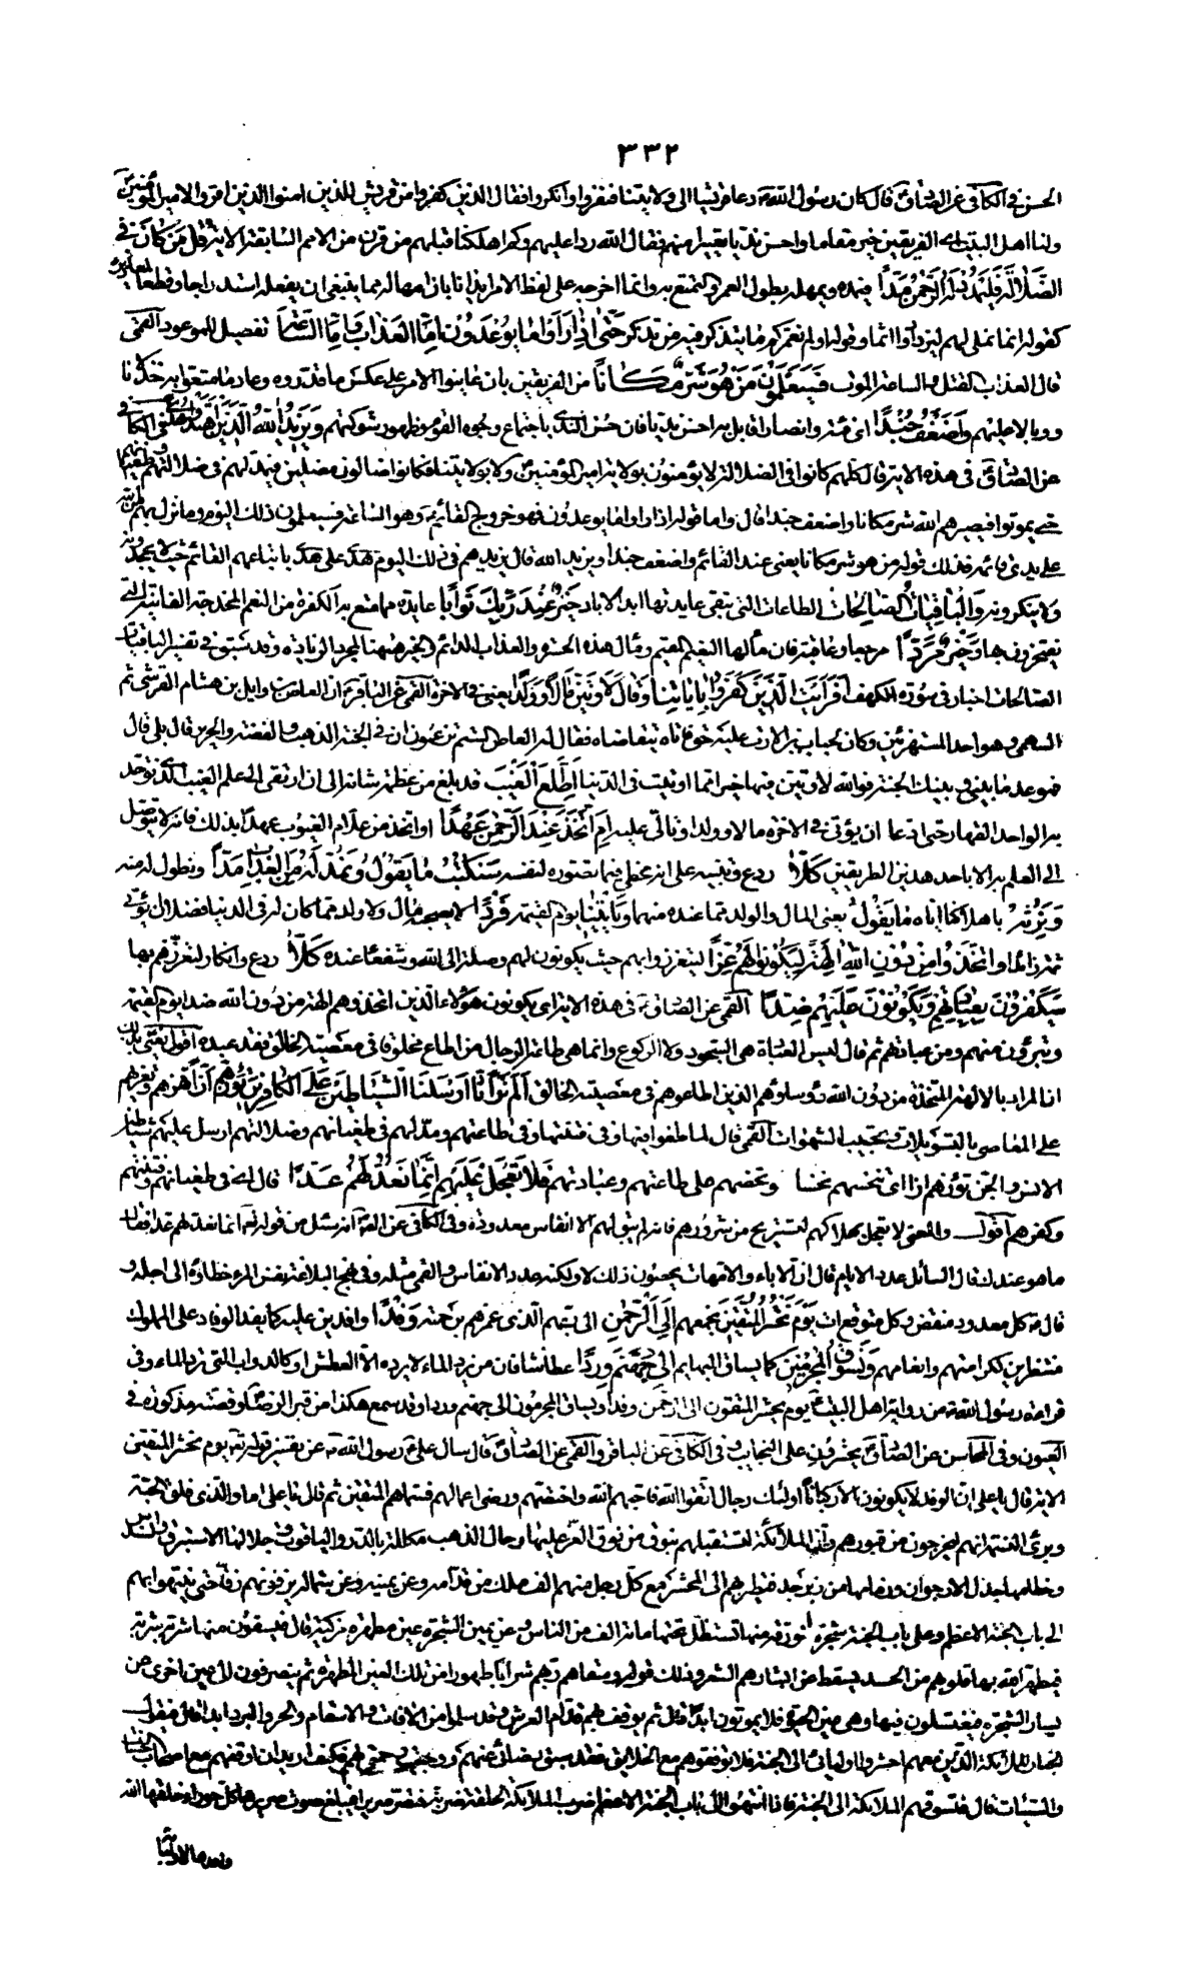 ٣٣٢
الحسن في الكافي عن الصادق قال كان رسول الله دعا قريشا الى ولايتنا فنفروا وانكروا فقال الذين كفروا من قريش للذين امنوا الذين اقروا لامير المؤمنين
ولنا اهل البيت اى الفريقين خير مقاما واحسن نديا تعييرا منهم فقال الله ردا عليهم وكم اهلكنا قبلهم من قرن من الامم السابقة الاية قل من كان في
الضلالة فليمدد له الرحمن مدا فيمده ويمهله بطول العمر والتمتع به وانما اخرجه على لفظ الامر ايذانا بان امهاله مما ينبغي ان يفعله استدراجا وقطعا لمعاذيره
كقوله انما نملى لهم ليزدادوا اثما وقوله اولم نعمركم ما يتذكر فيه من تذكر حتى اذا راوا ما يوعدون اما العذاب واما الساعة تفصيل للموعود القمي
قال العذاب القتل والساعة الموت فسيعلمون من هو شر مكانا من الفريقين بان عاينوا الامر على عكس ما قدروه وعاد ما متعوا به خذلانا
ووبالا عليهم واضعف جندا اى فئة وانصارا قابل به احسن نديا فان حسن النادى باجتماع وجوه القوم وظهور شوكتهم ويزيد الله الذين اهتدوا هدى في الكافي
عن الصادق في هذه الاية قال كلهم كانوا في الضلالة لا يؤمنون بولاية امير المؤمنين ولا بولايتنا فكانوا ضالين مضلين فيمد لهم في ضلالتهم وطغيانهم
حتى يموتوا فيصيرهم الله شر مكانا واضعف جندا قال واما قوله اذا راوا ما يوعدون فهو خروج القائم وهو الساعة فسيعلمون ذلك اليوم وما نزل بهم من الله
على يدى قائمه فذلك قوله من هو شر مكانا يعنى عند القائم واضعف جندا ويزيد الله قال يزيدهم في ذلك اليوم هدى على هدى باتباعهم القائم حيث لا يجحدونه
ولا ينكرونه والباقيات الصالحات الطاعات التى تبقى عايدتها ابد الاباد خير عند ربك ثوابا عايدة مما متع به الكفرة من النعم المخدجة الفانية التى
يفتخرون بها وخير مردا مرجعا وعاقبة فان مالها النعيم المقيم ومال هذه الحسرة والعذاب الدائم والخير ههنا لمجرد الزيادة وقد سبق في تفسير الباقيات
الصالحات اخبار في سورة الكهف افرايت الذى كفر باياتنا وقال لاوتين مالا وولدا يعنى في الاخرة القمي عن الباقر ان العاص بن وايل بن هشام القرشى ثم
السهمى وهو احد المستهزئين وكان لخباب بن الارت عليه حق فاتاه يتقاضاه فقال له العاص الستم تزعمون ان في الجنة الذهب والفضة والحرير قال بلى قال
فموعد ما بينى وبينك الجنة فوالله لاوتين فيها خيرا مما اوتيت في الدنيا اطلع الغيب قد بلغ من عظمة شانه الى ان ارتقى الى علم الغيب الذى توحد
به الواحد القهار حتى ادعا ان يؤتى في الاخرة مالا وولدا وتالى عليه ام اتخذ عند الرحمن عهدا او اتخذ من علام الغيوب عهدا بذلك فانه لا يتوصل
الى العلم به الا باحد هذين الطريقين كلا ردع وتنبيه على انه مخطئ فيما تصوره لنفسه سنكتب ما يقول ونمد له من العذاب مدا ونطول له منه
ونرثه باهلاكنا اياه ما يقول يعنى المال والولد مما عنده منهما وياتينا يوم القيمة فردا لا يصحبه مال ولا ولد مما كان له في الدنيا فضلا ان يؤتى
ثمة زائدا واتخذوا من دون الله الهة ليكونوا لهم عزا ليتعززوا بهم حيث يكونون لهم وصلة الى الله وشفعاء عنده كلا ردع وانكار لتعززهم بها
سيكفرون بعبادتهم ويكونون عليهم ضدا القمي عن الصادق في هذه الاية اى يكونون هؤلاء الذين اتخذوهم الهة من دون الله ضدا يوم القيمة
ويتبرؤن منهم ومن عبادتهم ثم قال ليس العبادة هى السجود ولا الركوع وانما هى طاعة الرجال من اطاع مخلوقا في معصية الخالق فقد عبده اقول يعنى بذلك
ان المراد بالالهة المتخذة من دون الله رؤساؤهم الذين اطاعوهم في معصية الخالق الم تر انا ارسلنا الشياطين على الكافرين تؤزهم ازا تهزهم وتغريهم
على المعاصى بالتسويلات وتحبيب الشهوات القمي قال لما طغوا فيها وفي فتنتها وفي طاعتهم ومد لهم في طغيانهم وضلالتهم ارسل عليهم شياطين
الانس والجن تؤزهم ازا اى تنخسهم نخسا وتحضهم على طاعتهم وعبادتهم فلا تعجل عليهم انما نعد لهم عدا قال اى في طغيانهم وفتنتهم
وكفرهم اقول والمعنى لا تعجل بهلاكهم لتستريح من شرورهم فانه لم يبق لهم الا انفاس معدودة وفي الكافي عن الصادق انه سئل من قوله تعالى انما نعد لهم عدا فقال
ما هو عندك قال السائل عدد الايام قال ان الاباء والامهات يحصون ذلك لا ولكنه عدد الانفاس والقمي مثله وفي نهج البلاغة نفس المرء خطاؤه الى اجله و
قال كل معدود منقض وكل متوقع ات يوم نحشر المتقين نجمعهم الى الرحمن الى ربهم الذى غمرهم برحمته وفدا وافدين عليه كما يفد الوفاد على الملوك
منتظرين لكرامتهم وانعامهم ونسوق المجرمين كما يساق البهايم الى جهنم وردا عطاشا فان من يرد الماء لا يرده الا لعطش او كالدواب التى ترد الماء وفى
قراءة رسول الله من رواية اهل البيت يوم يحشر المتقون الى الرحمن وفدا ويساق المجرمون الى جهنم وردا وقد سمع هكذا من قبر الرضا وقصته مذكورة في
العيون وفى المحاسن عن الصادق يحشرون على النجايب وفى الكافي عن الباقر والقمي عن الصادق قال سال على رسول الله عن تفسير قوله تعالى يوم نحشر المتقين
الاية قال يا على ان الوفد لا يكونون الا ركبانا اولئك رجال اتقوا الله فاحبهم الله واختصهم ورضى اعمالهم فسماهم المتقين ثم قال يا على اما والذى فلق الحبة
وبرئ النسمة انهم ليخرجون من قبورهم وان الملائكة لتستقبلهم بنوق من نوق العز عليها رحال الذهب مكللة بالدر والياقوت وجلالها الاستبرق والسندس
وخطامها جدل الارجوان وزمامها من زبرجد فتطير بهم الى المحشر مع كل رجل منهم الف ملك من قدامه وعن يمينه وعن شماله يزفونهم زفا حتى ينتهوا بهم
الى باب الجنة الاعظم وعلى باب الجنة شجرة الورقة منها تستظل تحتها مائة الف من الناس وعن يمين الشجرة عين مطهرة مزكية قال فيسقون منها شربة شربة
فيطهر الله بها قلوبهم من الحسد ويسقط عن ابشارهم الشعر وذلك قوله وسقاهم ربهم شرابا طهورا من تلك العين المطهرة ثم ينصرفون الى عين اخرى عن
يسار الشجرة فيغتسلون فيها وهى عين الحيوة فلا يموتون ابدا قال ثم يوقف بهم قدام العرش وقد سلموا من الافات والاسقام والحر والبرد ابدا قال فيقول
الجبار للملائكة الذين معهم احشروا اوليائى الى الجنة فلا توقفوهم مع الخلايق فقد سبق رضائى عنهم ووجبت رحمتى لهم فكيف اريد ان اوقفهم مع اصحاب الحسنات
والسيئات قال فتسوقهم الملائكة الى الجنة فاذا انتهوا الى باب الجنة الاعظم ضرب الملائكة الحلقة ضربة فتصر صريرا فيبلغ صوت صريرها كل حوراء خلقها الله
واعدها لاوليائه